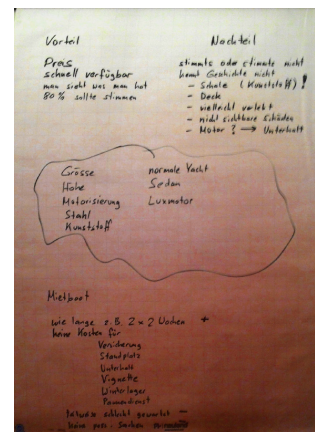 Vorteil
Preis
schnell verfügbar
man sieht was man hat
80 % sollte stimmen
Nachteil
stimmts oder stimmts nicht
kennt Geschichte nicht
- Schale (Kunststoff) !
- Deck
- vielleicht verlebt
- nicht sichtbare Schäden
- Motor ? → Unterhalt
Grösse
Höhe
Motorisierung
Stahl
Kunststoff
normale Yacht
Sedan
Luxmotor
Mietboot
wie lange z.B. 2 x 2 Wochen +
keine Kosten für
Versicherung
Standplatz
Unterhalt
Vignette
Winterlager
Pannendienst
teilweise schlecht gewartet -
keine pers. Sachen